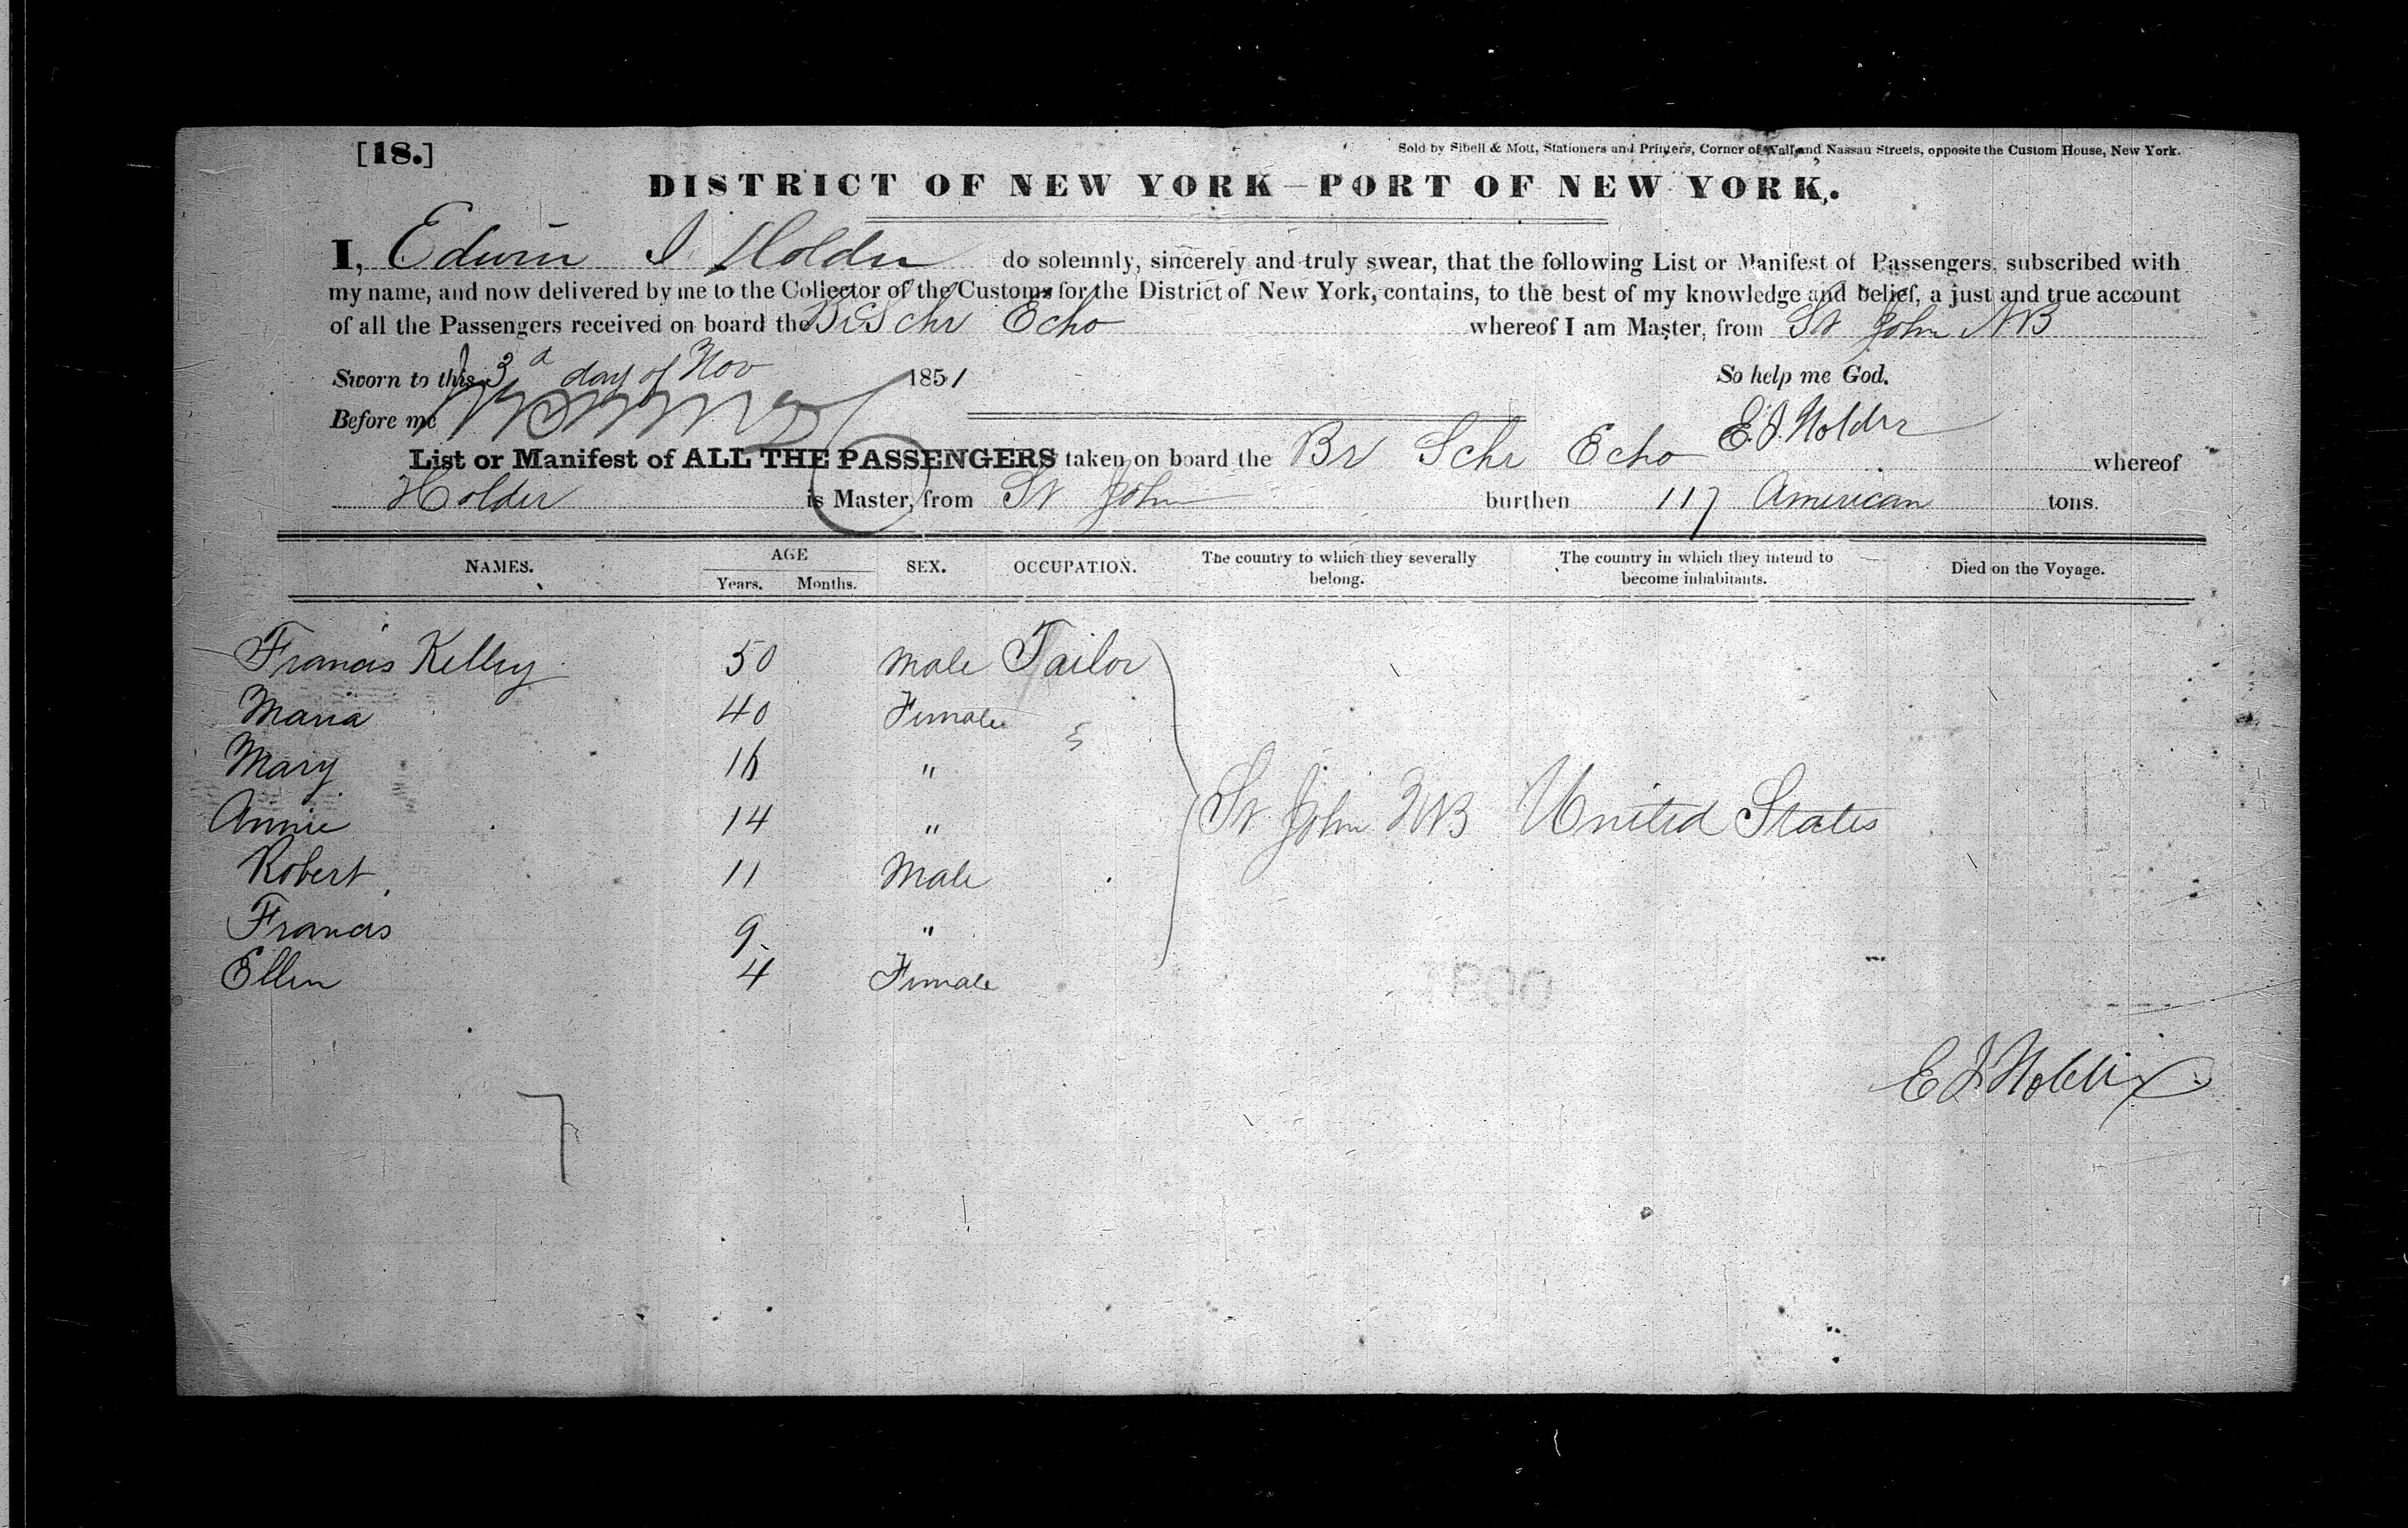 [18.]
Sold by Sibell & Mott, Stationers and Printers, Corner of Wall and Nassau Streets, opposite the Custom House, New York.
DISTRICT OF NEW YORK—PORT OF NEW YORK.
I, Edwin J Holder do solemnly, sincerely and truly swear, that the following List or Manifest of Passengers, subscribed with
my name, and now delivered by me to the Collector of the Customs for the District of New York, contains, to the best of my knowledge and belief, a just and true account
of all the Passengers received on board the Br Schr Echo whereof I am Master, from St John NB
Sworn to this 3d day of Nov 1851 So help me God.
Before me E. J. Holder
List or Manifest of ALL THE PASSENGERS taken on board the Br Schr Echo whereof
Holder is Master, from St John burthen 117 American tons.
NAMES. AGE Years. Months. SEX. OCCUPATION. The country to which they severally belong. The country in which they intend to become inhabitants. Died on the Voyage.
Francis Kelley 50 male Tailor
Maria 40 Female
Mary 16 "
Annie 14 " St John NB United States
Robert 11 Male
Francis 9 "
Ellen 4 Female
E J Holder
7